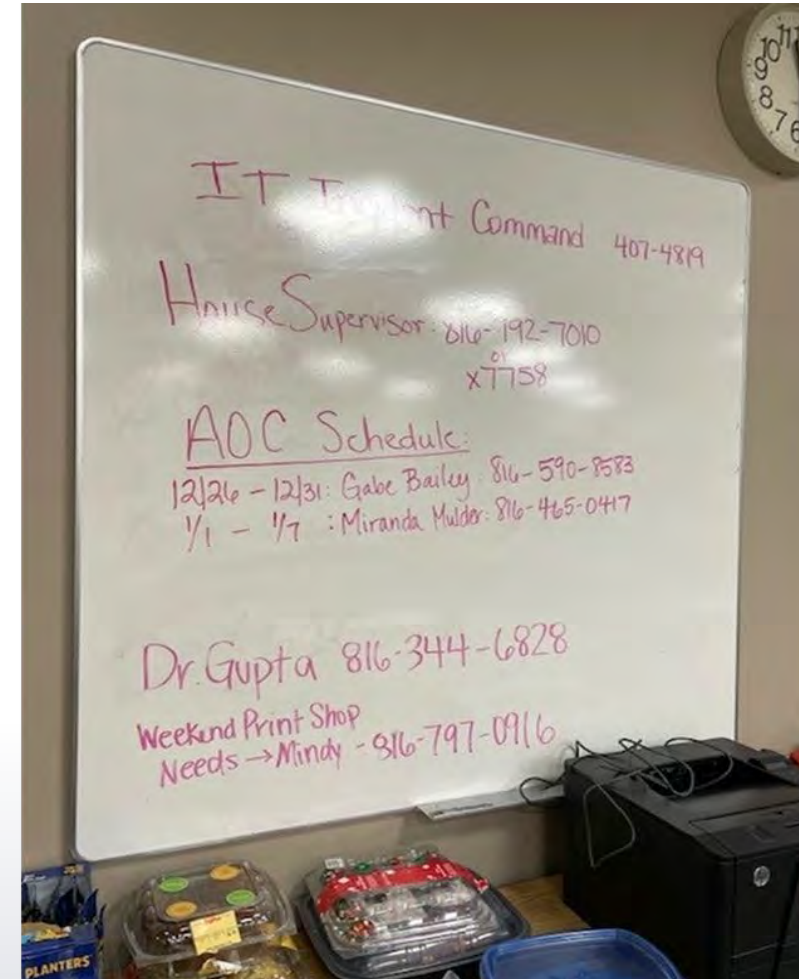 10 11
9
8
7 6
IT Incident Command 407-4819
House Supervisor: 816-192-7010
or
x7758
AOC Schedule:
12/26 - 12/31: Gabe Bailey: 816-590-8583
1/1 - 1/7 : Miranda Mulder: 816-465-0417
Dr. Gupta 816-344-6828
Weekend Print Shop
Needs → Mindy - 816-797-0916
PLANTERS